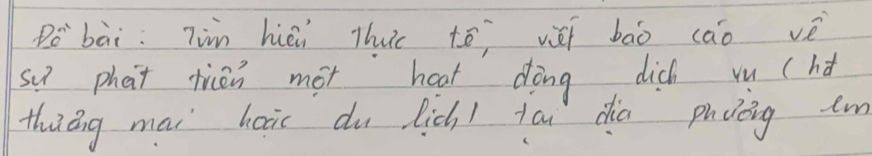 Đề bài: Tìm hiểu thực tế, viết báo cáo về
sự phát triển một hoạt động dịch vụ (hđ
thương mại hoặc du lịch) tại địa phương em